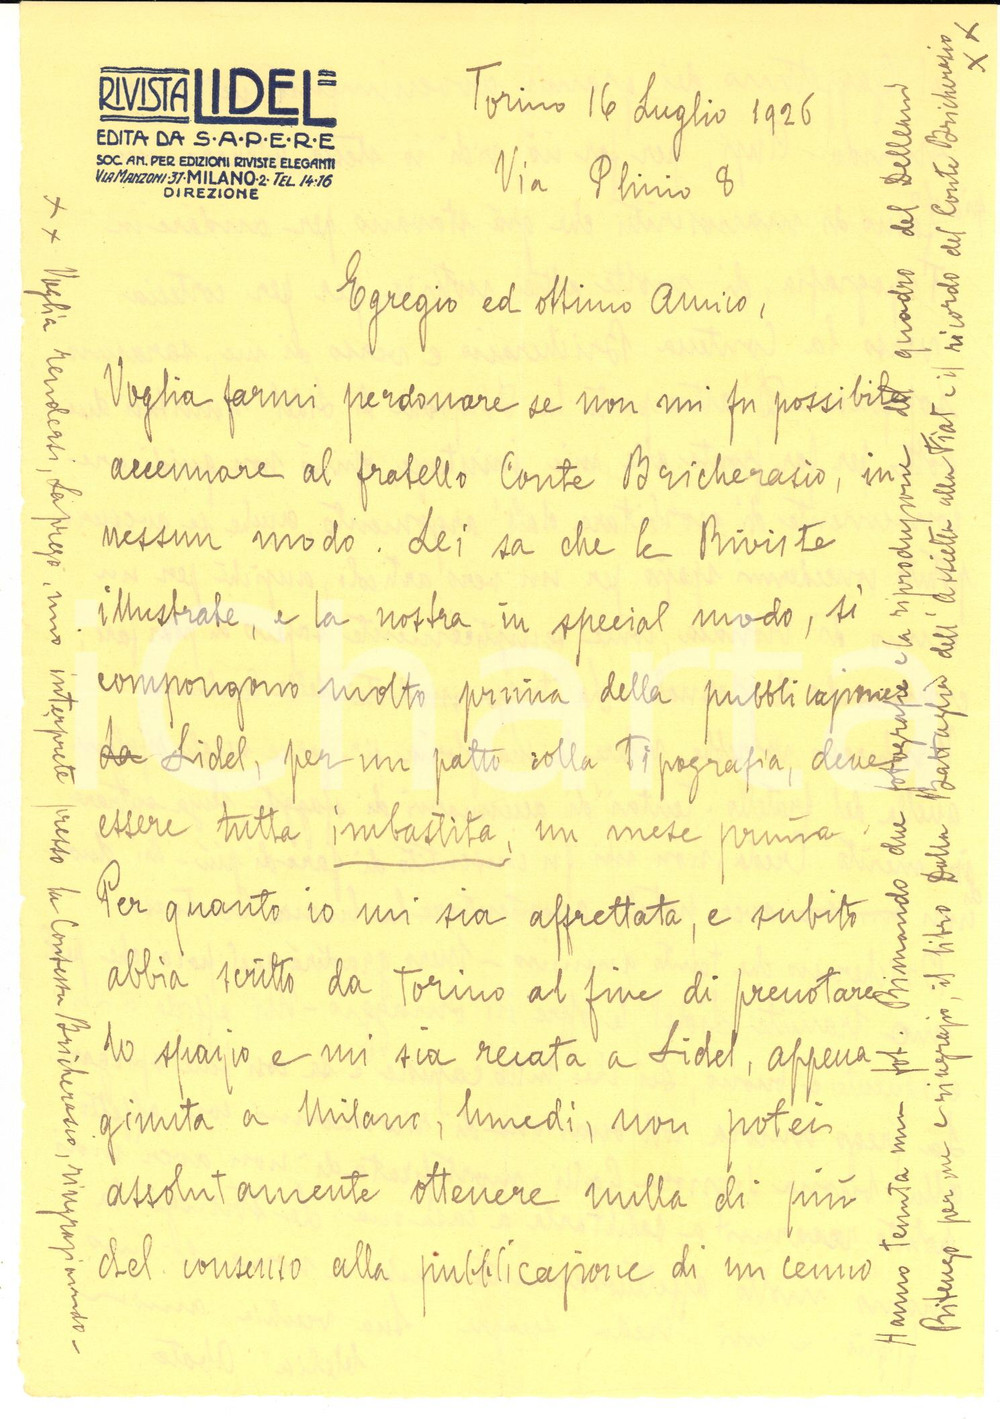 RIVISTA LIDEL
EDITA DA S·A·P·E·R·E
SOC. AN. PER EDIZIONI RIVISTE ELEGANTI
VIA MANZONI·37·MILANO·2·TEL. 14-16
DIREZIONE
Torino 16 Luglio 1926
Via Plinio 8
Egregio ed ottimo Amico,
Voglia farmi perdonare se non mi fu possibile
accennare al fratello Conte Bricherasio, in
nessun modo. Lei sa che le Riviste
illustrate, e la nostra in special modo, si
compongono molto prima della pubblicazione
La Lidel, per un patto colla Tipografia, deve
essere tutta imbastita, un mese prima.
Per quanto io mi sia affrettata, e subito
abbia scritto da Torino al fine di prenotare
lo spazio e mi sia recata a Lidel, appena
giunta a Milano, lunedì, non potei
assolutamente ottenere nulla di più
del consenso alla pubblicazione di un cenno
Hanno tenuta una fot. Rimando due fotografie e la riproduzione del quadro del Delleani
Ritengo per me e ringrazio, il libro Dalla Battaglia dell'Assietta alla Fiat e il ricordo del Conte Bricherasio
x x
x x Voglia rendersi, La prego, mio interprete presso la Contessa Bricherasio, ringraziando-
iCharta